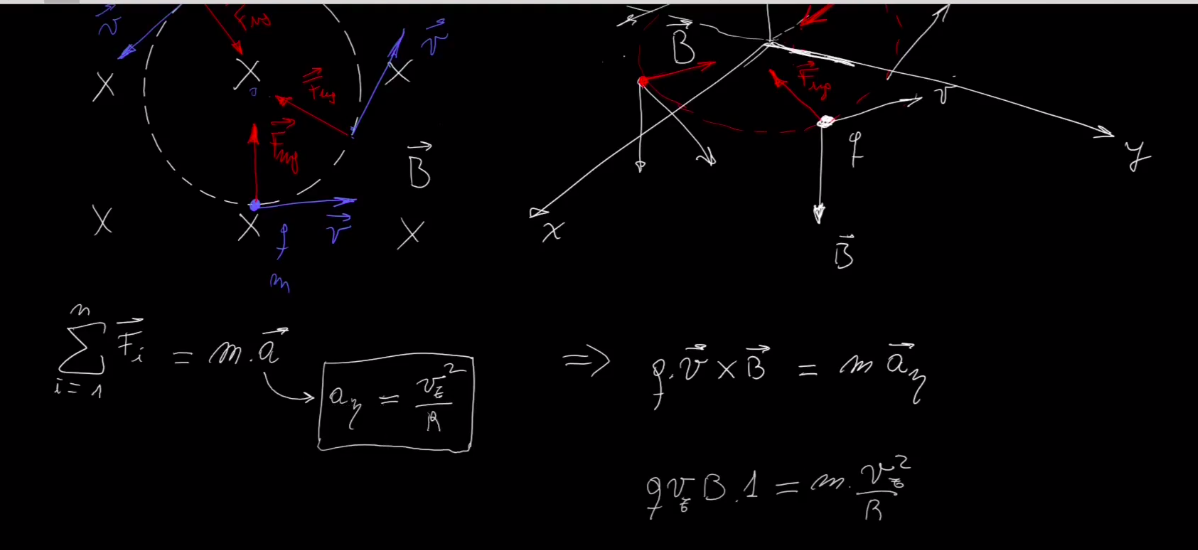 v⃗
F⃗mg
v⃗
X
X
X
F⃗mg
F⃗mg
B⃗
X
X
v⃗
X
q
m
B⃗
F⃗mg
v
q
y
x
B⃗
n
∑ F⃗i = m.a⃗
i=1
aη = vt²/R
=> q.v⃗ × B⃗ = m a⃗η
q vt B.1 = m. vt²/R